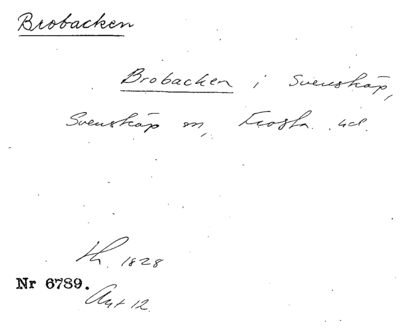 Brobacken
Brobacken i Svenskåp,
Svenskåp m, Frosta hd.
th. 1828
Nr 6789.
Akt 12.